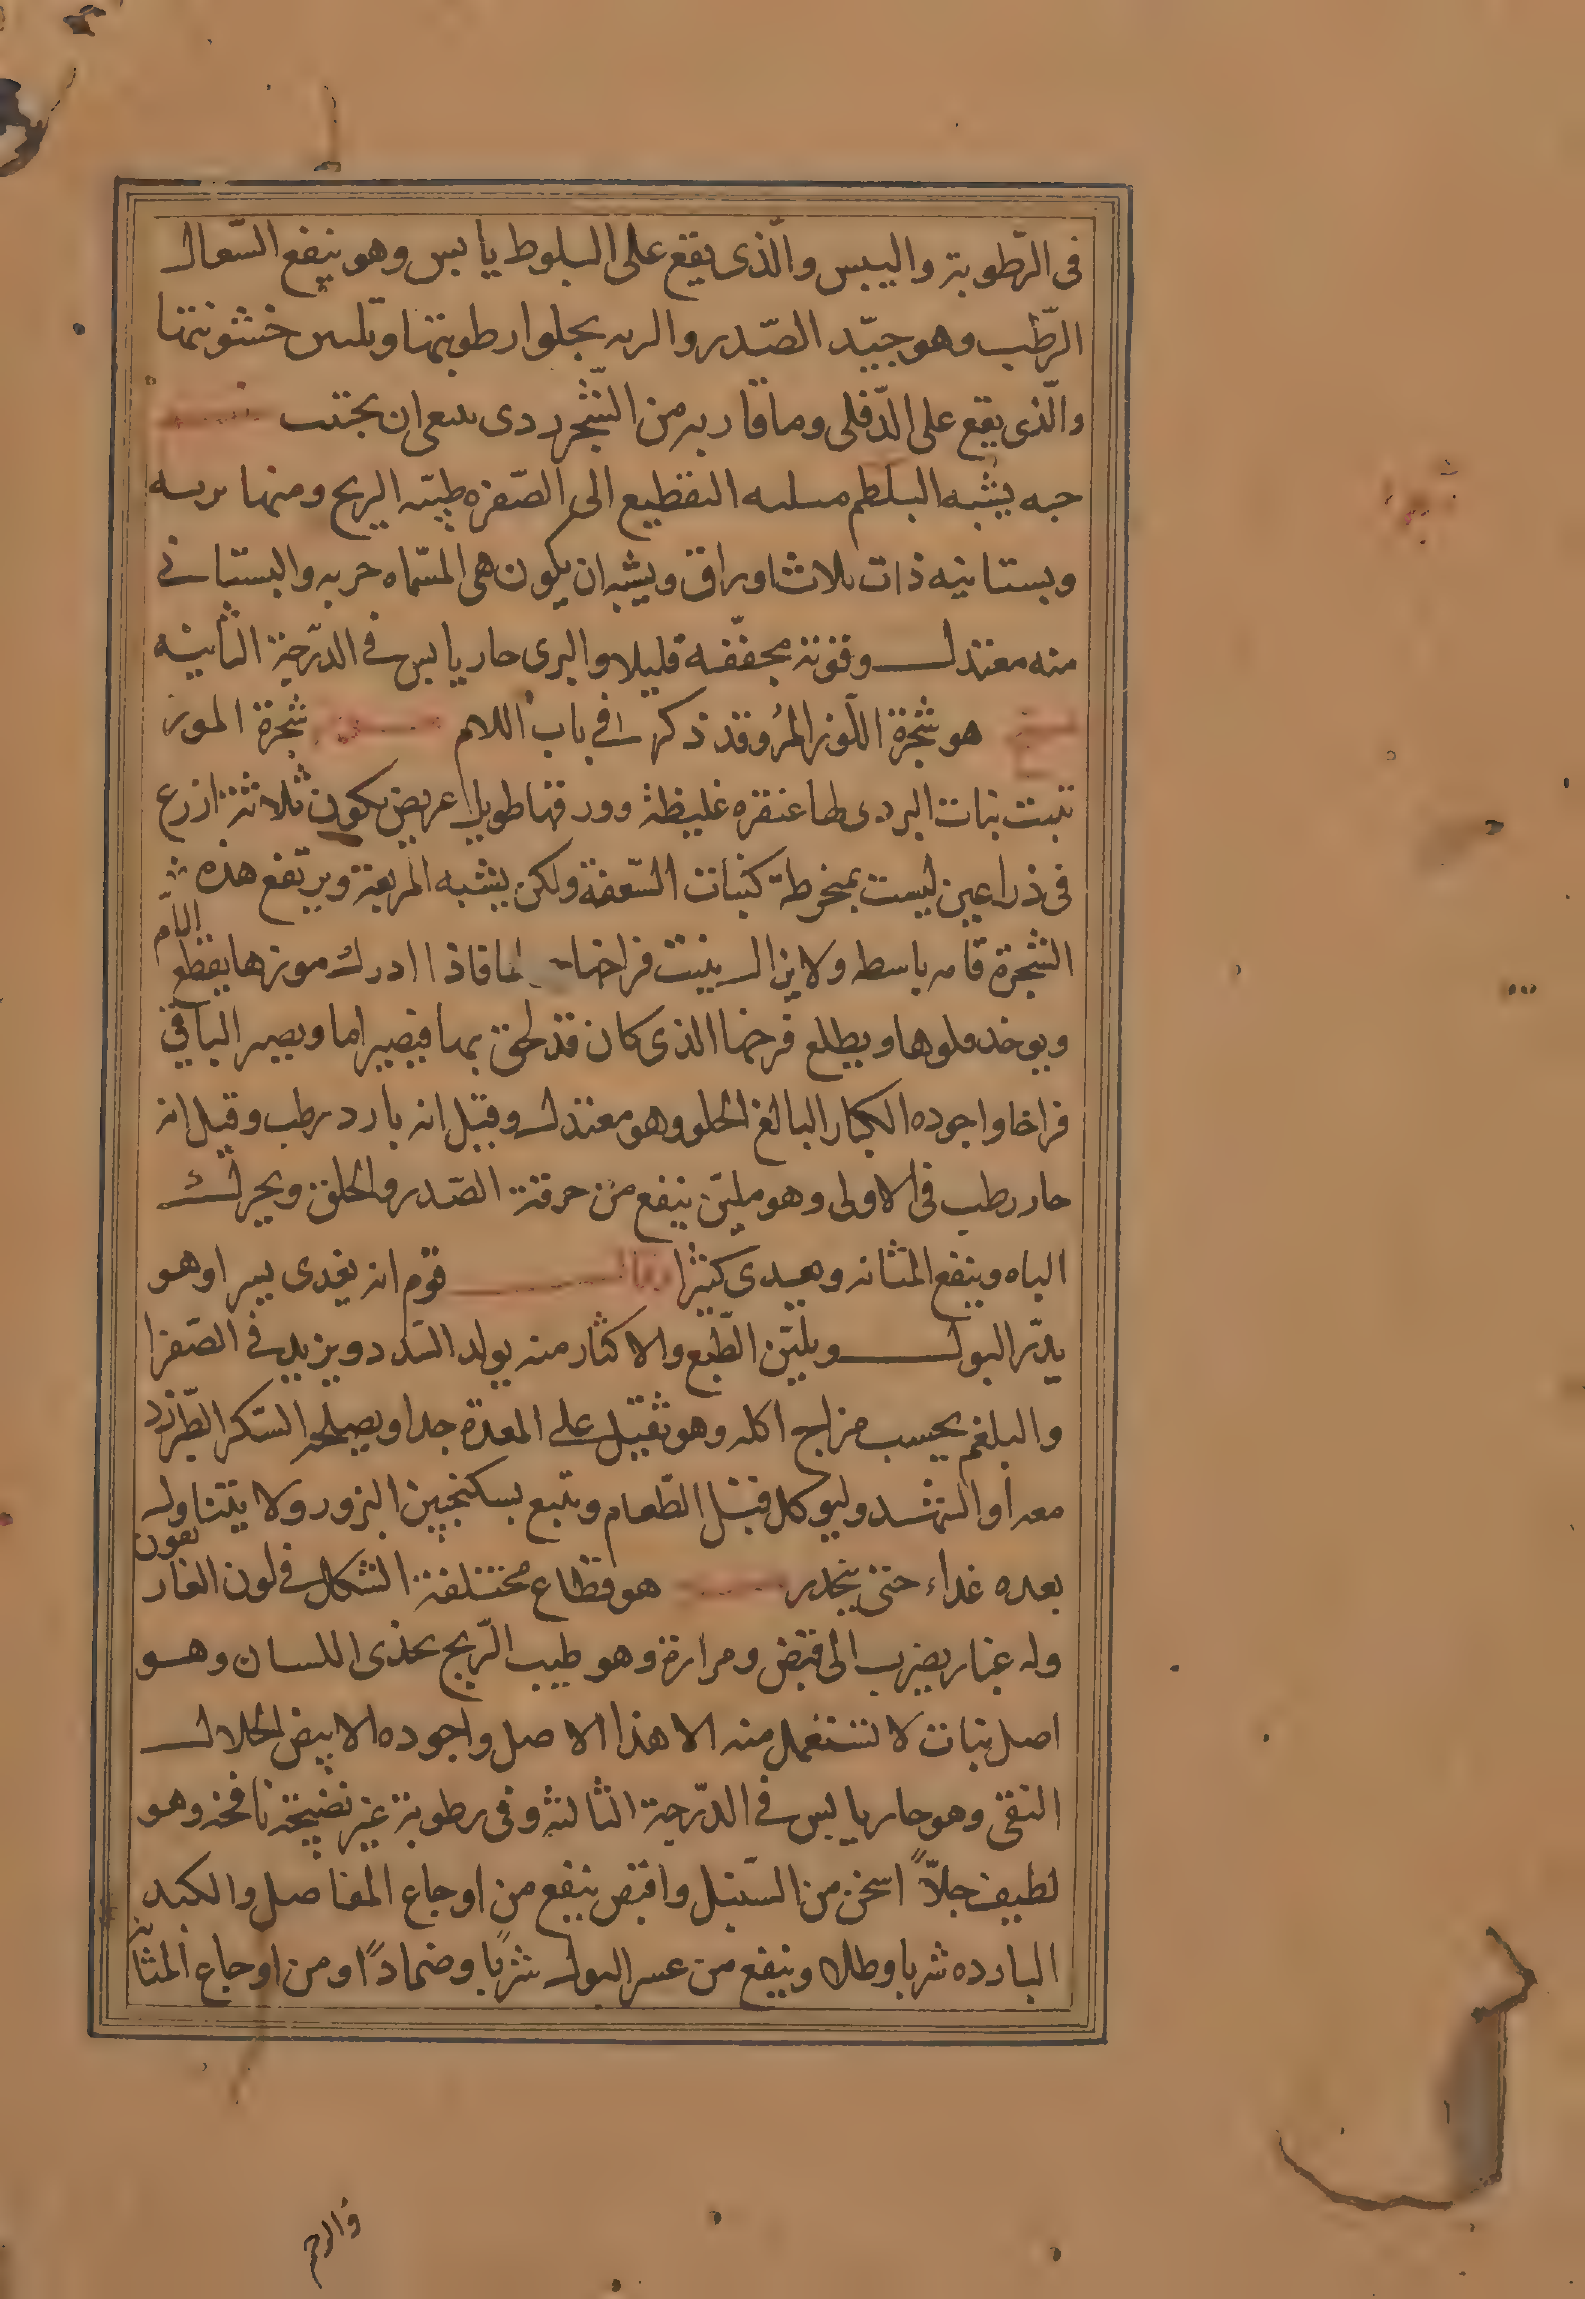 فى الرّطوبة واليبس والّذى يقع على البلوط يابس وهو ينفع السّعال
الرّطب وهو جيّد الصّدر والريه يجلوا رطوبتها ويلين خشونتها
والّذى يقع على الدّفلى وما قاربه من الشّجر ردى ينبغى ان يجتنب
حبه يشبه البلطم مثلثه التقطيع الى الصّفره طيّبه الريح ومنها بريه
وبستانيه ذات ثلاث اوراق ويشبه ان يكون هى المسّماه حربه والبستانى
منه معتدل وقوته مجفّفه قليلا والبرى حار يابس فى الدّرجة الثانيه
هو شجرة اللّوز المُر وقد ذكر فى باب اللام شجرة الموز
تنبت نبات البردى لها عنقره غليظة وورقها طويل عريض يكون ثلاثة ازرع
فى ذراعين ليست بمخرطة كنبات السّعفة ولكن يشبه المربعة ويرتفع هذه
الشجرة قامه باسطه ولا يزال ينبت فراخها لها فاذا ادرك موزها يقطع الاّم
ويوخد فلوها ويطلع فرخها الذى كان قد لحق بها فيصير اما ويصير الباقى
فراخا واجوده الكبار البالغ الحلو وهو معتدل وقيل انه بارد رطب وقيل انه
حار رطب فى الاولى وهو مليّن ينفع من حرقة الصّدر والحلق ويحرك
الباه وينفع المثانه وهيدى كثيرا وقال قوم انه يغدى يسيرا وهو
يدّر البول ويليّن الطّبع والاكثار منه يولد السّدد ويزيد فى الصّفرا
والبلغم بحسب مزاج اكله وهو ثقيل على المعدة جدا ويصلحه السّكر الطّبرزد
معه او الشهد وليوكل قبل الطّعام ويتبع بسكنجبين البزور ولا يتناول
بعده غداء حتى ينحدر هو قطاع مختلفة الشكل فى لون الغاريقون
وله غبار يضرب الى قبض ومرارة وهو طيب الرّيح يحذى اللسان وهو
اصل نبات لا تستعمل منه الا هذا الاصل واجوده الابيض الحلال
النقى وهو حار يابس فى الدّرجة الثالثة وفى رطوبة غير نضيجة نافخه وهو
لطيف جلاّءً اسخن من السّنبل واقبض ينفع من اوجاع المفاصل والكبد
البارده شربا وطلا وينفع من عسر البول شربًا وضمادًا ومن اوجاع المثانه
والرحم